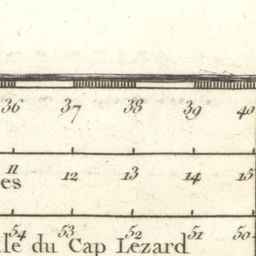 36 37 38 39 40
11 12 13 14 15
es
54 53 52 51 50
ale du Cap Lézard